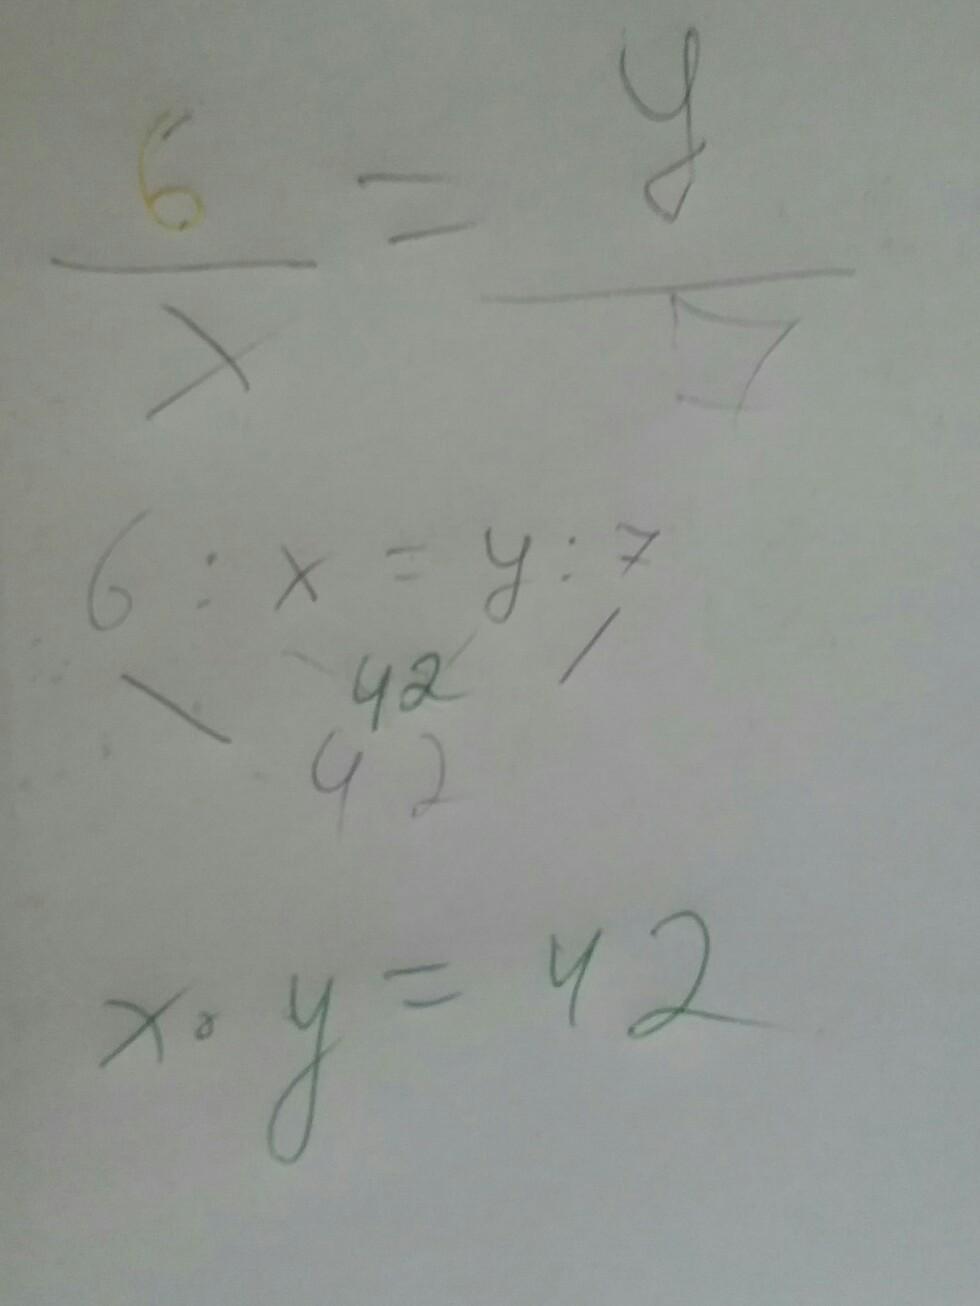 6/x = y/7
6 : x = y : 7
42
42
x · y = 42